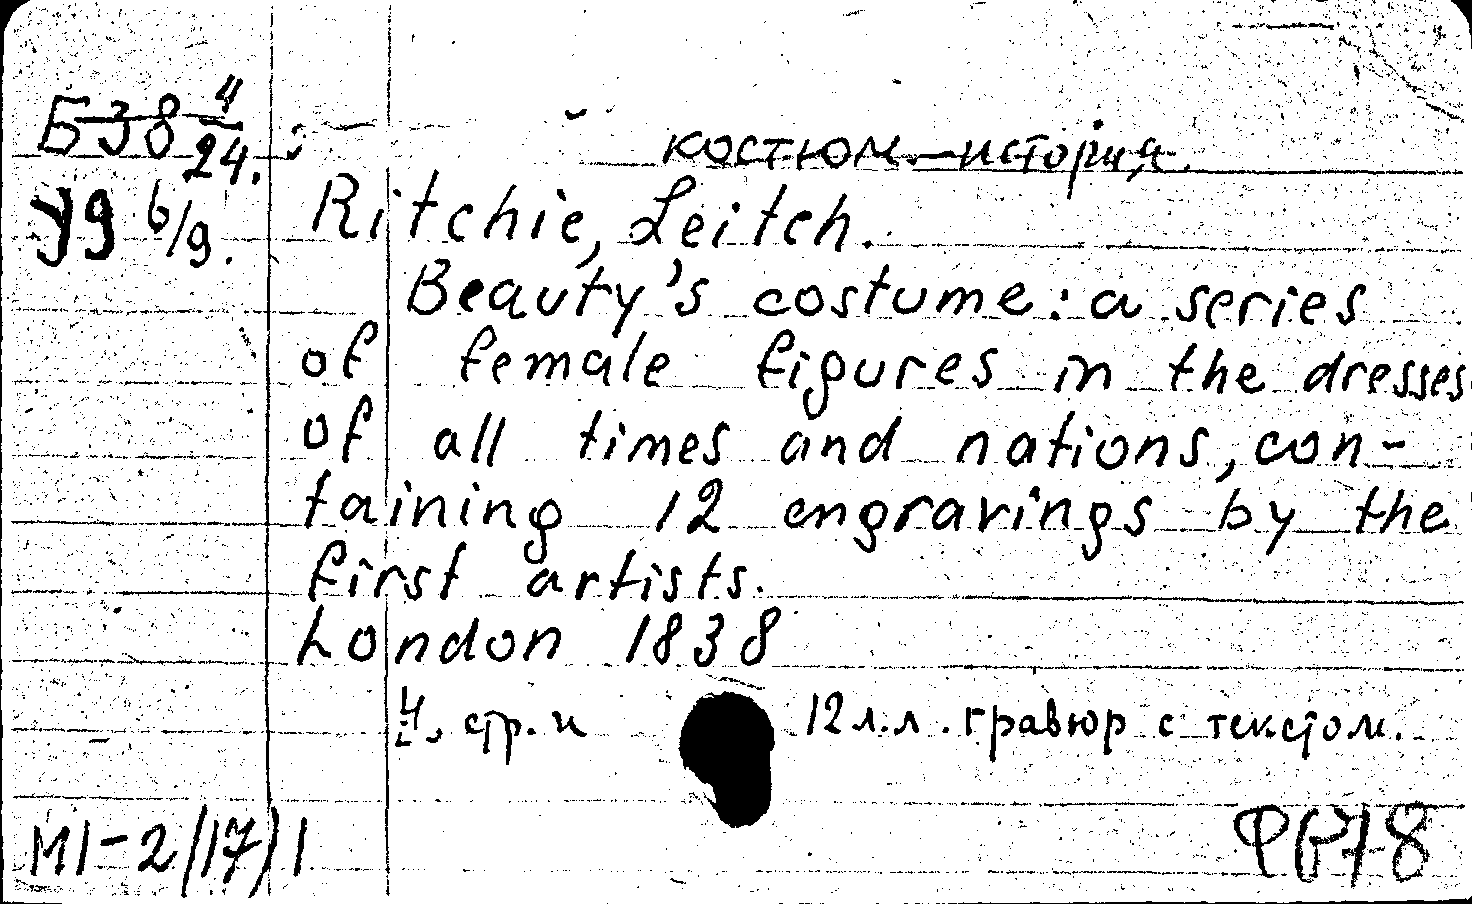 Б38 4/24.
костюм.—история.
У9 6/9.
Ritchie, Leitch.
Beauty's costume: a series
of female figures in the dresses
of all times and nations, con-
taining 12 engravings by the
first artists.
London 1838
4. стр. и 12 л.л. гравюр с текстом.
М1-2/17/1